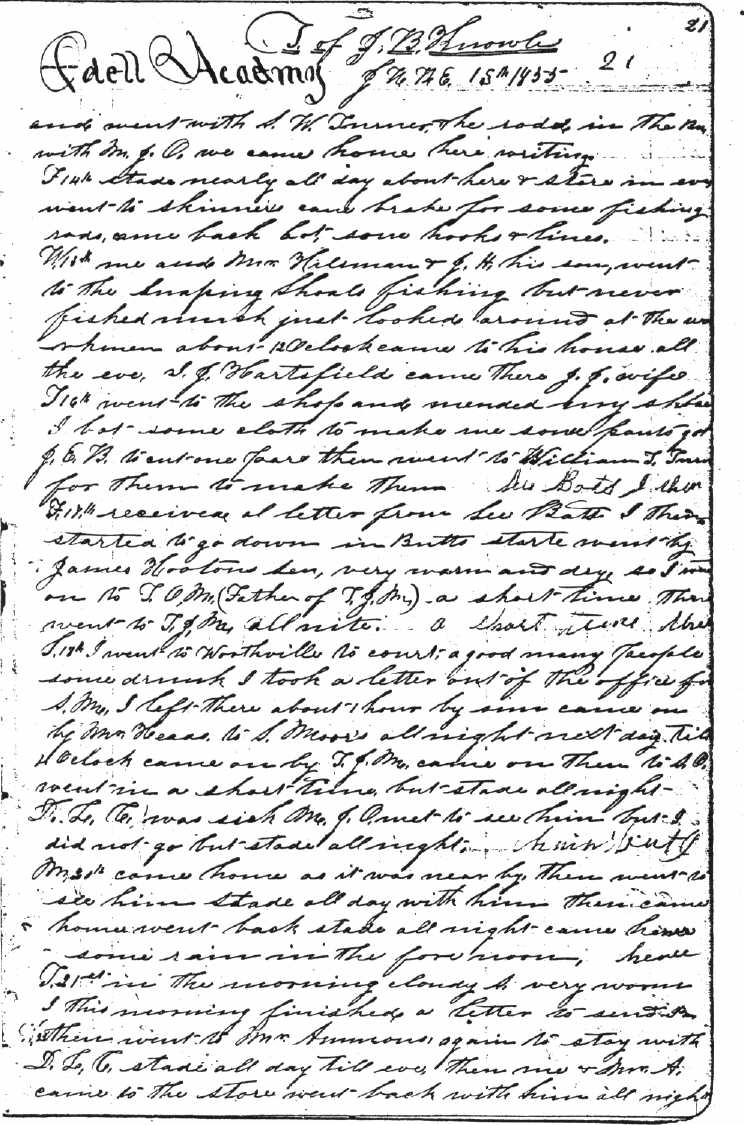 21
T. of J. B. Knowls
Edell Academy J U N E 15th 1855 21
and went with S. W. Turner, the rodd, in the
with M. J. O. we came home here writing
F 14th stade nearly all day about here & store in eve
went to skinners cane brake for some fishing
rods, came back bot, some hooks & lines.
W. me and Mr. Hilsman & J. H. his son, went
to the Snaping Shoals fishing but never
fished much just looked around at the
about 12 Oclock came to his house all
the eve, S. J. Hartsfield came there J. J. wife
T went to the shop and mended my shoe
I bot some cloth to make me some pants got
J. E. B. to cut one pare then went to William T. Turn
for them to make them Lee Batts I then
F. received a letter from Lee Batts I then
started to go down in Butts started went by
James Hootons sen, very warm and dry, so I went
on to T. O. Mc, (Father of T. J. Mc,) a short time then
went to T. J. Mc, all nite. a short time then
S. I went to Worthville to court, a good many people
some drunk I took a letter out of the office for
S. Mc, I left there about 1 hour by sun came on
by Mr. Heads to S. Moors all night next day till
4 Oclock came on by T. J. Mc, came on then to
went in a short time, but stade all night
D. L. C. was sick Mc, J. O. wet to see him but I
did not go but stade all night.
M. 20th came home as it was near by, then went to
see him stade all day with him then came
home went back stade all night came home
some rain in the fore noon, heare
T. 21st in the morning cloudy & very worm
I this morning finished, a letter to send
then went to Mr. Ammons, again to stay with
D. L. C. stade all day till eve, then me & Mr. A.
came to the store went back with him all night